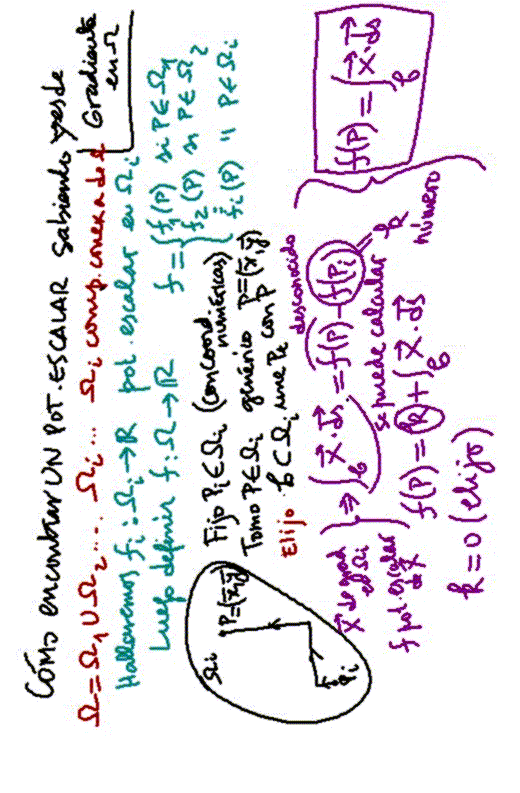 CÓMO encontrar UN POT. ESCALAR sabiendo
Gradiente
en Ω
Ω = Ω₁ ∪ Ω₂ ... Ω_i ... Ω_i comp. conexa de Ω
Hallaremos f_i : Ω_i → ℝ pot. escalar en Ω_i
Luego definir f : Ω → ℝ f = { f₁(P) si P ∈ Ω₁
f₂(P) si P ∈ Ω₂
f_i(P) " P ∈ Ω_i
Ω_i
P = (x̄, ȳ)
P_i
Fijo P_i ∈ Ω_i (con coord. numéricas)
Tomo P ∈ Ω_i genérico P = (x̄, ȳ)
Elijo b ⊂ Ω_i une P_i con P
X⃗ de grad en Ω_i
f pot. escalar de X⃗
} ⇒ ∫_b X⃗ · ds⃗ = f(P) - f(P_i)
desconocido
se puede calcular
= k
número
f(P) = k + ∫_b X⃗ · ds⃗
k = 0 (elijo)
f(P) = ∫_b X⃗ · ds⃗